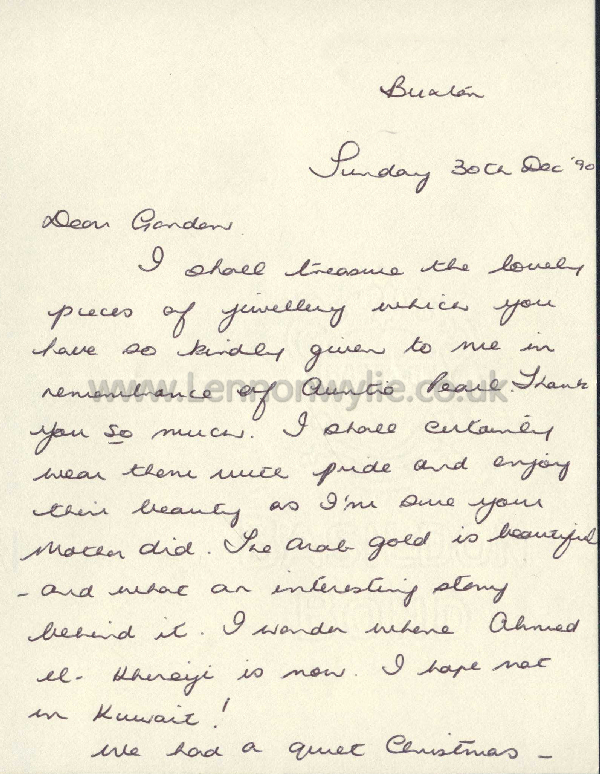 Buxton
Sunday 30th Dec '90
Dear Gordon
I shall treasure the lovely
pieces of jewellery which you
have so kindly given to me in
remembrance of Auntie Pearl. Thank
you so much. I shall certainly
wear them with pride and enjoy
their beauty as I'm sure your
Mother did. The Arab gold is beautiful
- and what an interesting story
behind it. I wonder where Ahmed
el- Khereiji is now. I hope not
in Kuwait!
We had a quiet Christmas -
www.Lennonwylie.co.uk